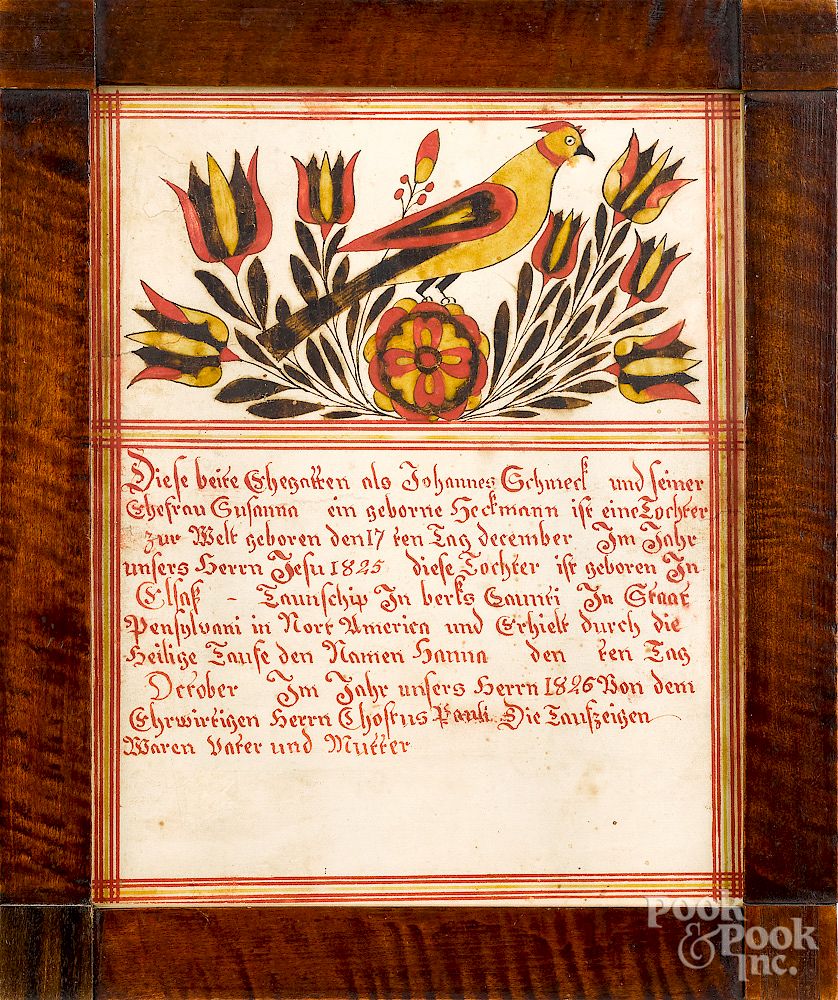 Diese beite Ehegatten als Johannes Schmeck und seiner
Ehefrau Susanna ein geborne Heckmann ist eine Tochter
zur Welt geboren den 17 ten Tag december Im Jahr
unsers Herrn Jesu 1825 diese Tochter ist geboren In
Elsaß - Taunschip In berks Caunti In Staat
Pensylvani in Nort America und Erhielt durch die
Heilige Taufe den Namen Hanna den ten Tag
October Im Jahr unsers Herrn 1826 Von dem
Ehrwirtigen Herrn Pauli Die Taufzeigen
Waren Vater und Mutter
Pook
& Pook
Inc.